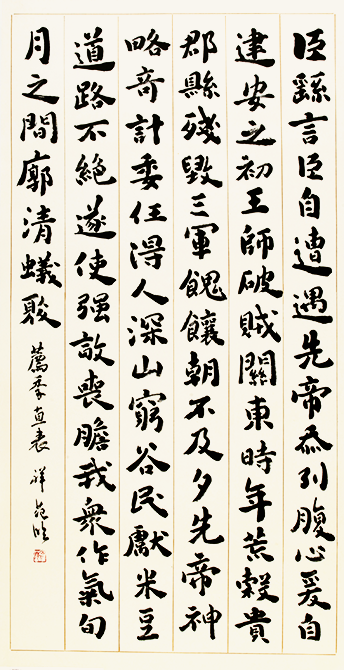 臣繇言臣自遭遇先帝忝列腹心爰自
建安之初王師破賊關東時年荒穀貴
郡縣殘毀三軍餽饟朝不及夕先帝神
略奇計委任得人深山窮谷民獻米豆
道路不絕遂使强敵喪膽我衆作氣旬
月之間廓清蟻聚
薦季直表 祥